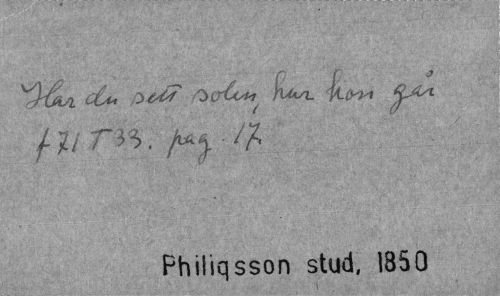 Har du sett solen, hur hon går
f 71 T 33. pag. 17.
Philiqsson stud, 1850